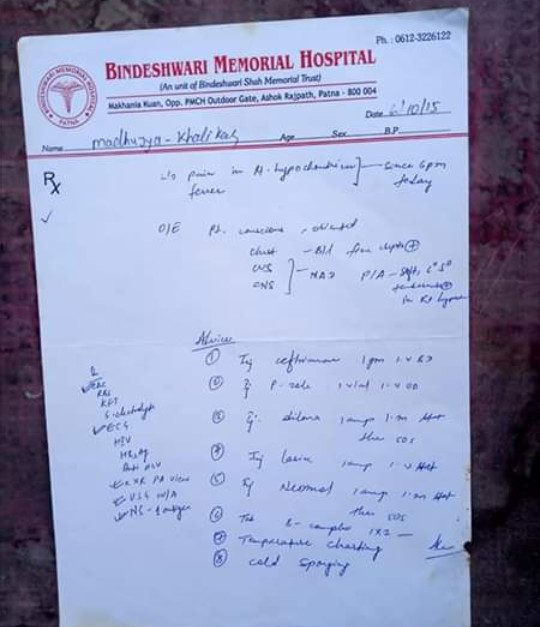 Ph. : 0612-3226122
BINDESHWARI MEMORIAL HOSPITAL
(An unit of Bindeshwari Shah Memorial Trust)
Makhania Kuan, Opp. PMCH Outdoor Gate, Ashok Rajpath, Patna - 800 004
BINDESHWARI MEMORIAL HOSPITAL
PATNA
Date 6/10/15
Name Age Sex B.P.
Rx
c/o pain in hypochondrium since 6 pm
fever today
O/E Pt. conscious, oriented
Chest - B/L
CVS
CNS NAD P/A - Soft,
in Rt hypo
Advice
① Inj ceftriaxone 1 gm I.V BD
② 1 vial I.V OD
③ 1 amp I.M stat
then SOS
④ Inj Lasix 1 amp I.V stat
⑤ Inj Neomol 1 amp I.M stat
then SOS
⑥ Tab B-complex 1x2
⑦ Temperature charting
⑧ cold sponging
CBC
RBS
KFT
S. electrolyte
ECG
HIV
HBsAg
Anti HCV
CXR PA view
USG W/A
NS-1 antigen